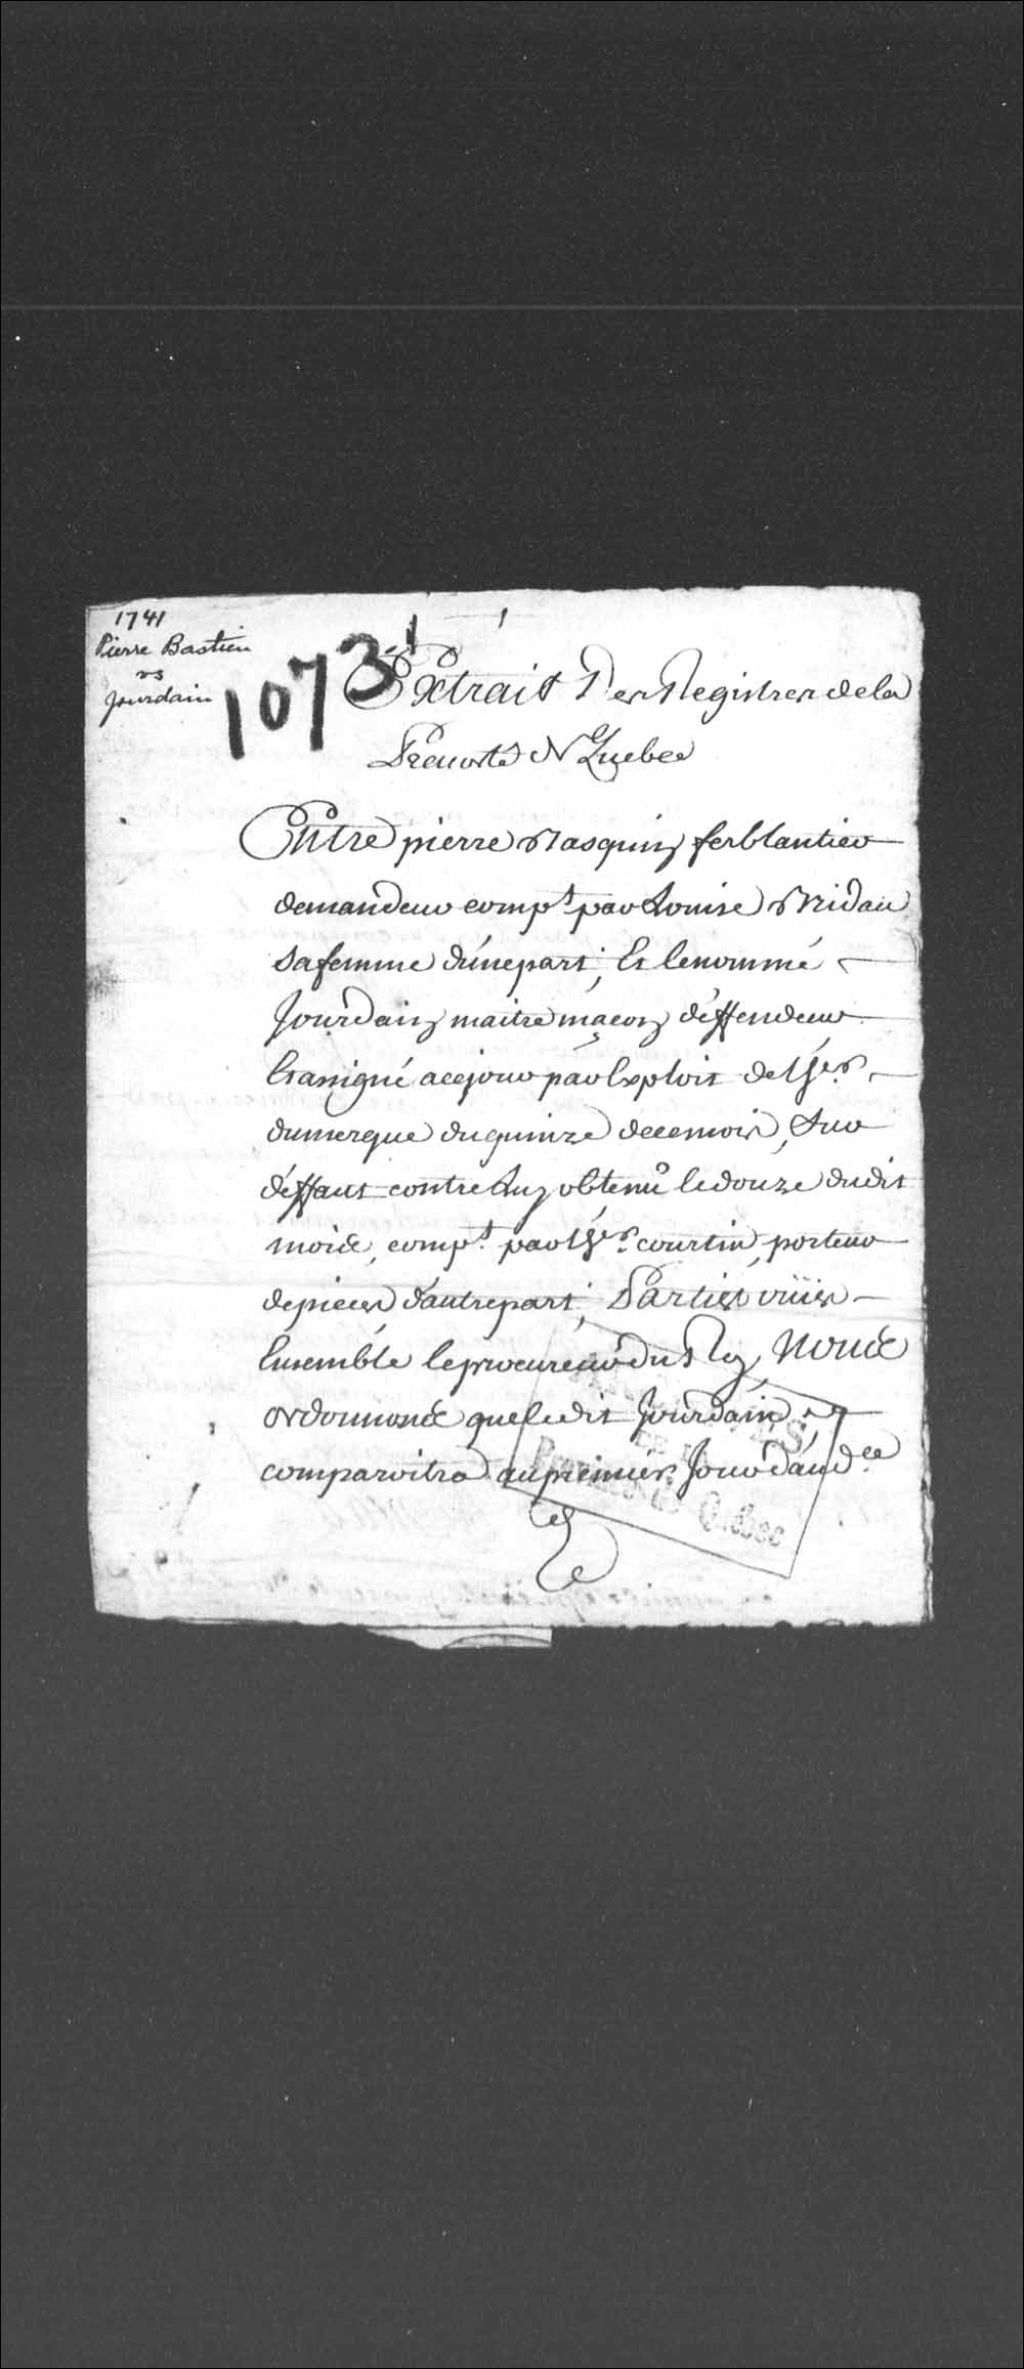 1741
Pierre Bastien
vs
Jourdain
1073
1
Extrait Des Registres de la
Prevosté de Quebec
Entre pierre Basquin ferblantier
demandeur comp.t par Louise Bridau
sa femme d'une part, Et le nommé
Jourdain maitre maçon deffendeur
Et assigné a ce jour par Exploit de l'h.er
dumergue du quinze de ce mois, Sur
deffaut contre Luy obtenû le douze dudit
mois, comp.t par l'h.er courtin, porteur
de pieces d'autre part, Parties ouïes
Ensemble le procureur du Roy, Nous
ordonnons que ledit Jourdain
comparoitra au premier Jour d'aud.ce
Province de Québec